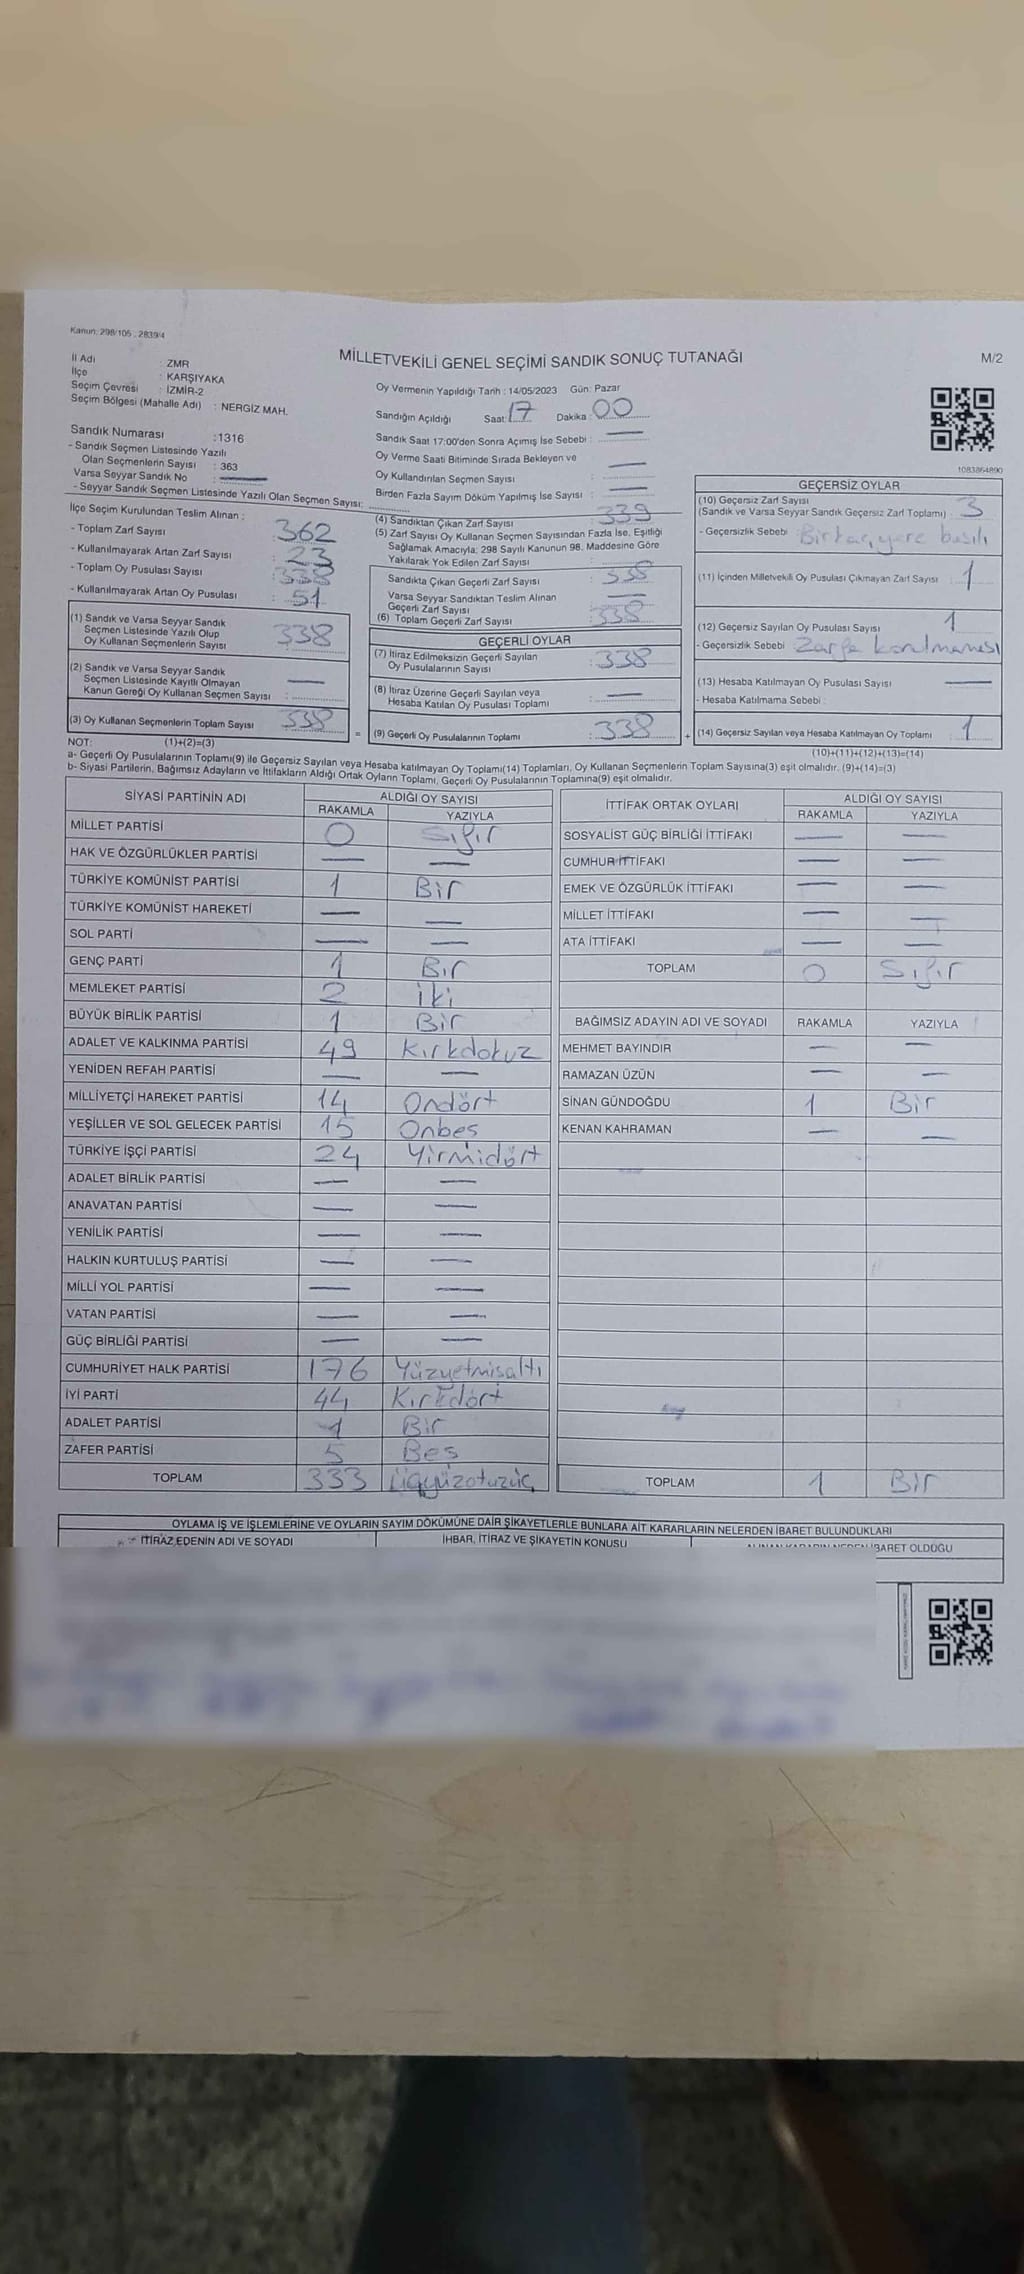 Kanun: 298/105 , 2839/4
MİLLETVEKİLİ GENEL SEÇİMİ SANDIK SONUÇ TUTANAĞI
M/2
İl Adı : ZMR
İlçe : KARŞIYAKA
Seçim Çevresi : İZMİR-2
Seçim Bölgesi (Mahalle Adı) : NERGİZ MAH.
Sandık Numarası :1316
- Sandık Seçmen Listesinde Yazılı
Olan Seçmenlerin Sayısı : 363
Varsa Seyyar Sandık No : —
- Seyyar Sandık Seçmen Listesinde Yazılı Olan Seçmen Sayısı:
Oy Vermenin Yapıldığı Tarih : 14/05/2023 Gün: Pazar
Sandığın Açıldığı Saat: 17 Dakika : 00
Sandık Saat 17:00'den Sonra Açımış İse Sebebi : —
Oy Verme Saati Bitiminde Sırada Bekleyen ve
Oy Kullandırılan Seçmen Sayısı : —
Birden Fazla Sayım Döküm Yapılmış İse Sayısı : —
1083864890
İlçe Seçim Kurulundan Teslim Alınan :
- Toplam Zarf Sayısı : 362
- Kullanılmayarak Artan Zarf Sayısı : 23
- Toplam Oy Pusulası Sayısı : 338
- Kullanılmayarak Artan Oy Pusulası : 51
(1) Sandık ve Varsa Seyyar Sandık
Seçmen Listesinde Yazılı Olup
Oy Kullanan Seçmenlerin Sayısı : 338
(2) Sandık ve Varsa Seyyar Sandık
Seçmen Listesinde Kayıtlı Olmayan
Kanun Gereği Oy Kullanan Seçmen Sayısı : —
(3) Oy Kullanan Seçmenlerin Toplam Sayısı : 338
(4) Sandıktan Çıkan Zarf Sayısı : 339
(5) Zarf Sayısı Oy Kullanan Seçmen Sayısından Fazla İse, Eşitliği
Sağlamak Amacıyla; 298 Sayılı Kanunun 98. Maddesine Göre
Yakılarak Yok Edilen Zarf Sayısı :
Sandıkta Çıkan Geçerli Zarf Sayısı : 338
Varsa Seyyar Sandıktan Teslim Alınan
Geçerli Zarf Sayısı : —
(6) Toplam Geçerli Zarf Sayısı : 338
GEÇERLİ OYLAR
(7) İtiraz Edilmeksizin Geçerli Sayılan
Oy Pusulalarının Sayısı : 338
(8) İtiraz Üzerine Geçerli Sayılan veya
Hesaba Katılan Oy Pusulası Toplamı : —
= (9) Geçerli Oy Pusulalarının Toplamı : 338 +
GEÇERSİZ OYLAR
(10) Geçersiz Zarf Sayısı
(Sandık ve Varsa Seyyar Sandık Geçersiz Zarf Toplamı) : 3
- Geçersizlik Sebebi : Birkaç yere basılı
(11) İçinden Milletvekili Oy Pusulası Çıkmayan Zarf Sayısı : 1
(12) Geçersiz Sayılan Oy Pusulası Sayısı : 1
- Geçersizlik Sebebi : Zarfa konulmaması
(13) Hesaba Katılmayan Oy Pusulası Sayısı : —
- Hesaba Katılmama Sebebi :
(14) Geçersiz Sayılan veya Hesaba Katılmayan Oy Toplamı : 1
NOT: (1)+(2)=(3)
(10)+(11)+(12)+(13)=(14)
a- Geçerli Oy Pusulalarının Toplamı(9) ile Geçersiz Sayılan veya Hesaba katılmayan Oy Toplamı(14) Toplamları, Oy Kullanan Seçmenlerin Toplam Sayısına(3) eşit olmalıdır. (9)+(14)=(3)
b- Siyasi Partilerin, Bağımsız Adayların ve İttifakların Aldığı Ortak Oyların Toplamı, Geçerli Oy Pusulalarının Toplamına(9) eşit olmalıdır.
SİYASİ PARTİNİN ADI ALDIĞI OY SAYISI
RAKAMLA YAZIYLA
MİLLET PARTİSİ 0 Sıfır
HAK VE ÖZGÜRLÜKLER PARTİSİ — —
TÜRKİYE KOMÜNİST PARTİSİ 1 Bir
TÜRKİYE KOMÜNİST HAREKETİ — —
SOL PARTİ — —
GENÇ PARTİ 1 Bir
MEMLEKET PARTİSİ 2 iki
BÜYÜK BİRLİK PARTİSİ 1 Bir
ADALET VE KALKINMA PARTİSİ 49 Kırkdokuz
YENİDEN REFAH PARTİSİ — —
MİLLİYETÇİ HAREKET PARTİSİ 14 Ondört
YEŞİLLER VE SOL GELECEK PARTİSİ 15 Onbeş
TÜRKİYE İŞÇİ PARTİSİ 24 Yirmidört
ADALET BİRLİK PARTİSİ — —
ANAVATAN PARTİSİ — —
YENİLİK PARTİSİ — —
HALKIN KURTULUŞ PARTİSİ — —
MİLLİ YOL PARTİSİ — —
VATAN PARTİSİ — —
GÜÇ BİRLİĞİ PARTİSİ — —
CUMHURİYET HALK PARTİSİ 176 Yüzyetmişaltı
İYİ PARTİ 44 Kırkdört
ADALET PARTİSİ 1 Bir
ZAFER PARTİSİ 5 Beş
TOPLAM 333 Üçyüzotuzüç
İTTİFAK ORTAK OYLARI ALDIĞI OY SAYISI
RAKAMLA YAZIYLA
SOSYALİST GÜÇ BİRLİĞİ İTTİFAKI — —
CUMHUR İTTİFAKI — —
EMEK VE ÖZGÜRLÜK İTTİFAKI — —
MİLLET İTTİFAKI — —
ATA İTTİFAKI — —
TOPLAM 0 Sıfır
BAĞIMSIZ ADAYIN ADI VE SOYADI RAKAMLA YAZIYLA
MEHMET BAYINDIR — —
RAMAZAN ÜZÜN — —
SİNAN GÜNDOĞDU 1 Bir
KENAN KAHRAMAN — —
TOPLAM 1 Bir
OYLAMA İŞ VE İŞLEMLERİNE VE OYLARIN SAYIM DÖKÜMÜNE DAİR ŞİKAYETLERLE BUNLARA AİT KARARLARIN NELERDEN İBARET BULUNDUKLARI
İTİRAZ EDENİN ADI VE SOYADI İHBAR, İTİRAZ VE ŞİKAYETİN KONUSU İBARET OLDUĞU